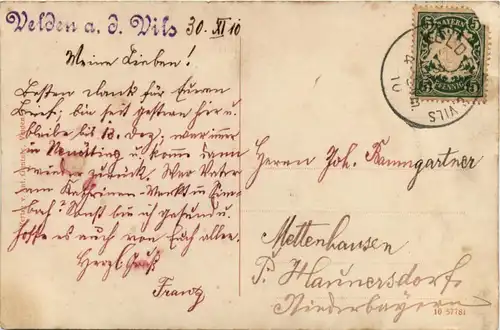 Velden a. d. Vils
30. XI 10
Meine Lieben!
Besten Dank für Euren
Brief; bin seit gestern hier u.
bleibe bis 13. Dez; war immer
in Neuötting u. komme dann
wieder zurück. War Vater
am Kathrinen-Markt in Sim-
bach? Sonst bin ich gesund u.
hoffe es auch von Euch allen.
Herzl. Gruß
Franz
BAYERN
5 5
PFENNIG
VILS
10
Herrn Joh. Baumgartner
Mettenhausen
P. Haunersdorf,
Niederbayern
10 57781